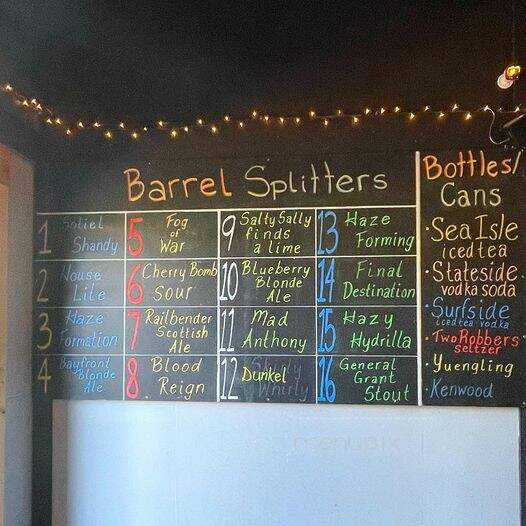 Barrel Splitters
1 Soliel
Shandy
2 House
Lite
3 Haze
Formation
4 Bayfront
Blonde
Ale
5 Fog
of
War
6 Cherry Bomb
Sour
7 Railbender
Scottish
Ale
8 Blood
Reign
9 Salty Sally
finds
a lime
10 Blueberry
Blonde
Ale
11 Mad
Anthony
12 Dunkel
13 Haze
Forming
14 Final
Destination
15 Hazy
Hydrilla
16 General
Grant
Stout
Bottles/
Cans
• Sea Isle
iced tea
• Stateside
vodka soda
• Surfside
iced tea vodka
• Two Robbers
seltzer
• Yuengling
• Kenwood